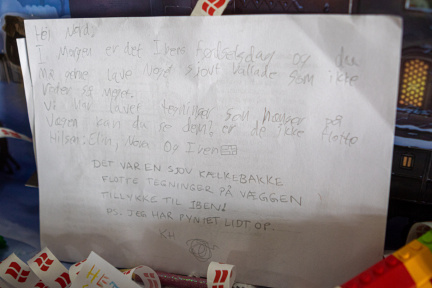 Hej
I Morgen er det Ibens fødselsdag og du
Må gerne lave Noget sjovt Ballade som ikke
Roder så meget.
Vi har lavet tegninger som hænger på
Væggen kan du se dem? er de ikke flotte
Hilsen: Og Iben
DET VAR EN SJOV KÆLKEBAKKE
FLOTTE TEGNINGER PÅ VÆGGEN
TILLYKKE TIL IBEN!
PS. JEG HAR PYNTET LIDT OP.
KH.